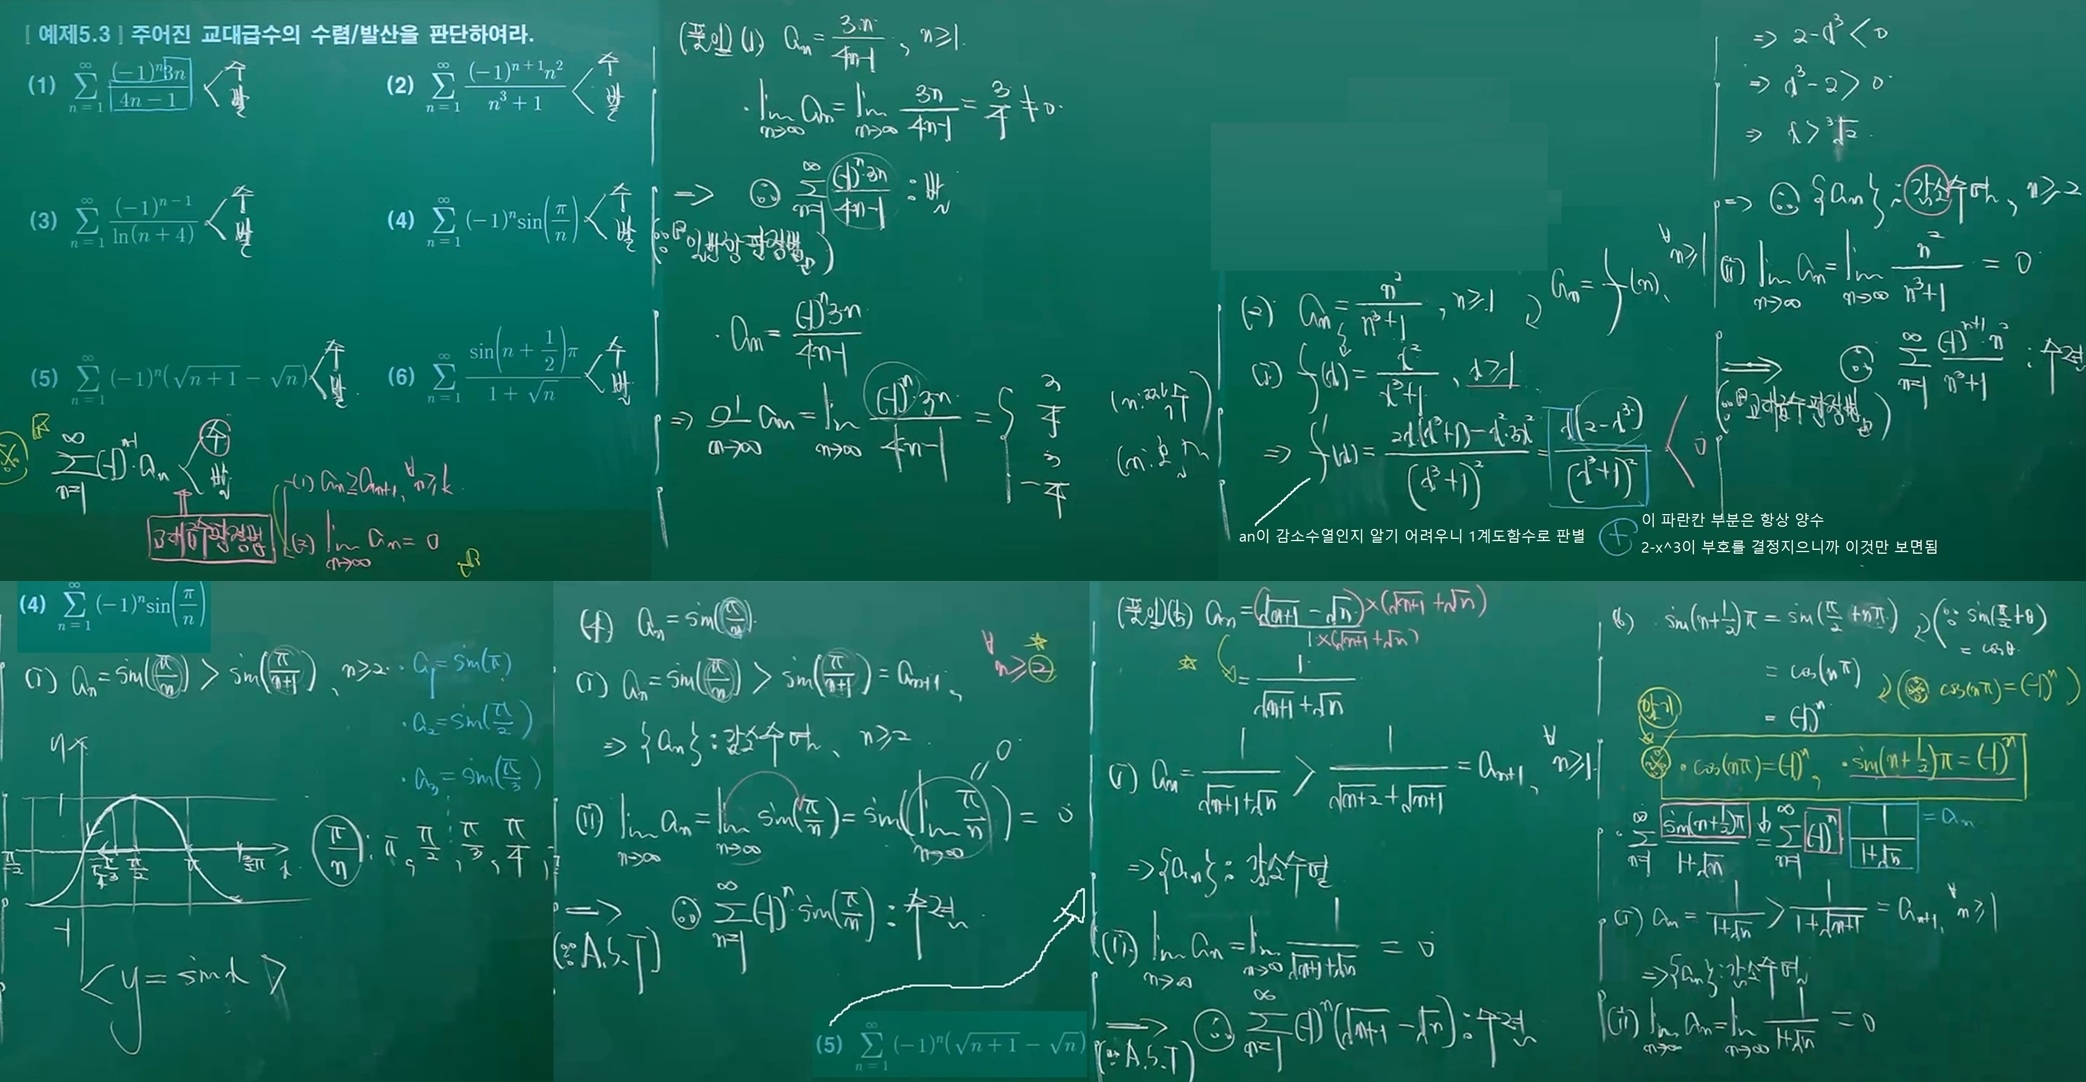 [ 예제5.3 ] 주어진 교대급수의 수렴/발산을 판단하여라.
(1) ∑_{n=1}^{∞} (-1)^n 3n / (4n-1) < 수 발
(2) ∑_{n=1}^{∞} (-1)^{n+1} n^2 / (n^3+1) < 수 발
(3) ∑_{n=1}^{∞} (-1)^{n-1} / ln(n+4) < 수 발
(4) ∑_{n=1}^{∞} (-1)^n sin(π/n) < 수 발
(5) ∑_{n=1}^{∞} (-1)^n (√(n+1) - √n) < 수 발
(6) ∑_{n=1}^{∞} sin(n+1/2)π / (1+√n) < 수 발
∑_{n=1}^{∞} (-1)^{n-1}·a_n < 수 발
교대급수판정법
(1) a_n ≥ a_{n+1}, ∀n≥k
(2) lim_{n→∞} a_n = 0
(풀이) (1) a_n = 3n/(4n-1), n≥1
· lim_{n→∞} a_n = lim_{n→∞} 3n/(4n-1) = 3/4 ≠ 0
⇒ ∴ ∑_{n=1}^{∞} (-1)^n·3n/(4n-1) : 발
(∵ 일반항판정법)
· a_n = (-1)^n 3n/(4n-1)
⇒ lim_{n→∞} a_n = lim_{n→∞} (-1)^n·3n/(4n-1) = { 3/4 (n:짝수)
-3/4 (n:홀수)
(2) a_n = n^2/(n^3+1), n≥1 a_n = f(n), ∀n≥1
(i) f(x) = x^2/(x^3+1), x≥1
⇒ f'(x) = (2x(x^3+1) - x^2·3x^2)/(x^3+1)^2 = x(2-x^3)/(x^3+1)^2 < 0
an이 감소수열인지 알기 어려우니 1계도함수로 판별
+ 이 파란칸 부분은 항상 양수
2-x^3이 부호를 결정지으니까 이것만 보면됨
⇒ 2-x^3 < 0
⇒ x^3-2 > 0
⇒ x > ∛2
⇒ ∴ {a_n} : 감소수열, n≥2
(ii) lim_{n→∞} a_n = lim_{n→∞} n^2/(n^3+1) = 0
⇒ ∴ ∑_{n=1}^{∞} (-1)^{n+1}·n^2/(n^3+1) : 수렴
(∵ 교대급수판정법)
(4) ∑_{n=1}^{∞} (-1)^n sin(π/n)
(i) a_n = sin(π/n) > sin(π/(n+1)), n≥2
· a_1 = sin(π)
· a_2 = sin(π/2)
· a_3 = sin(π/3)
y 1 -1 -π/2 π/4 π/3 π/2 π 3/2π x
π/n : π, π/2, π/3, π/4,
< y = sin x >
(4) a_n = sin(π/n)
(i) a_n = sin(π/n) > sin(π/(n+1)) = a_{n+1}, ∀n≥2
⇒ {a_n} : 감소수열, n≥2
(ii) lim_{n→∞} a_n = lim_{n→∞} sin(π/n) = sin(lim_{n→∞} π/n) = 0
0
⇒ ∴ ∑_{n=1}^{∞} (-1)^n·sin(π/n) : 수렴
(∵ A.S.T)
(5) ∑_{n=1}^{∞} (-1)^n (√(n+1) - √n)
(풀이) (5) a_n = (√(n+1) - √n)×(√(n+1)+√n) / 1×(√(n+1)+√n)
= 1/(√(n+1)+√n)
(i) a_n = 1/(√(n+1)+√n) > 1/(√(n+2)+√(n+1)) = a_{n+1}, ∀n≥1
⇒ {a_n} : 감소수열
(ii) lim_{n→∞} a_n = lim_{n→∞} 1/(√(n+1)+√n) = 0
⇒ ∴ ∑_{n=1}^{∞} (-1)^n (√(n+1) - √n) : 수렴
(∵ A.S.T)
(6) · sin(n+1/2)π = sin(π/2+nπ) (∵ sin(π/2+θ) = cosθ
= cos(nπ) (※ cos(nπ)=(-1)^n)
= (-1)^n
암기
※ · cos(nπ)=(-1)^n, · sin(n+1/2)π=(-1)^n
· ∑_{n=1}^{∞} sin(n+1/2)π/(1+√n) = ∑_{n=1}^{∞} (-1)^n · 1/(1+√n) = a_n
(i) a_n = 1/(1+√n) > 1/(1+√(n+1)) = a_{n+1}, ∀n≥1
⇒ {a_n} : 감소수열
(ii) lim_{n→∞} a_n = lim_{n→∞} 1/(1+√n) = 0